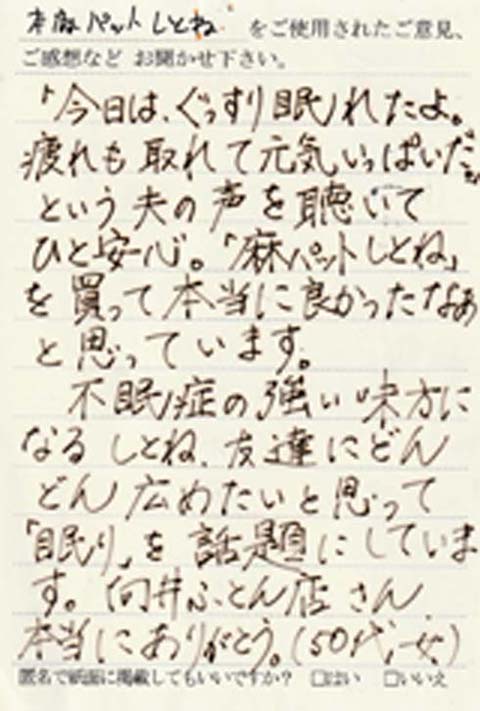 本麻パットしとね をご使用されたご意見、
ご感想など お聞かせ下さい。
「今日は、ぐっすり眠れたよ。
疲れも取れて元気いっぱいだ」
という夫の声を聴いて
ひと安心。「麻パットしとね」
を買って本当に良かったなあ
と思っています。
不眠症の強い味方に
なるしとね、友達にどん
どん広めたいと思って
「眠り」を話題にしていま
す。向井ふとん店さん
本当にありがとう。(50代,女)
匿名で紙面に掲載してもいいですか? □はい □いいえ